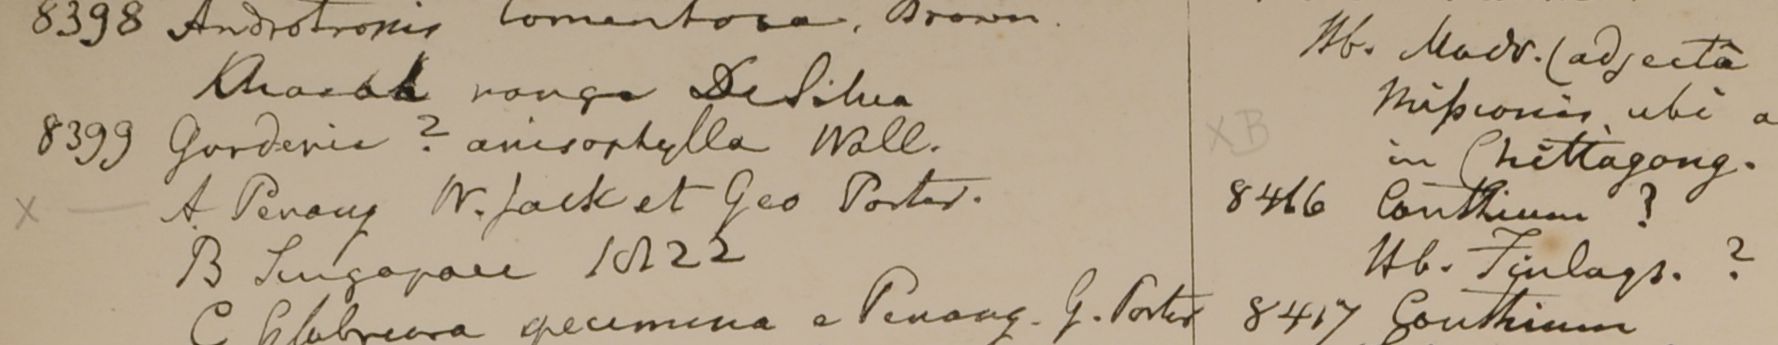 8398 Androtropis tomentosa, Brown.
ranga De Silva
8399 Gardenia ? anisophylla Wall.
X — A Penang W. Jack et Geo Porter.
B Singapore 1822
C Glabriora specimina e Penang. G. Porter
Hb. Madr. (adjectâ
Missionis, ubi a
XB
in Chittagong.
8416 Canthium ?
Hb. Finlays. ?
8417 Canthium